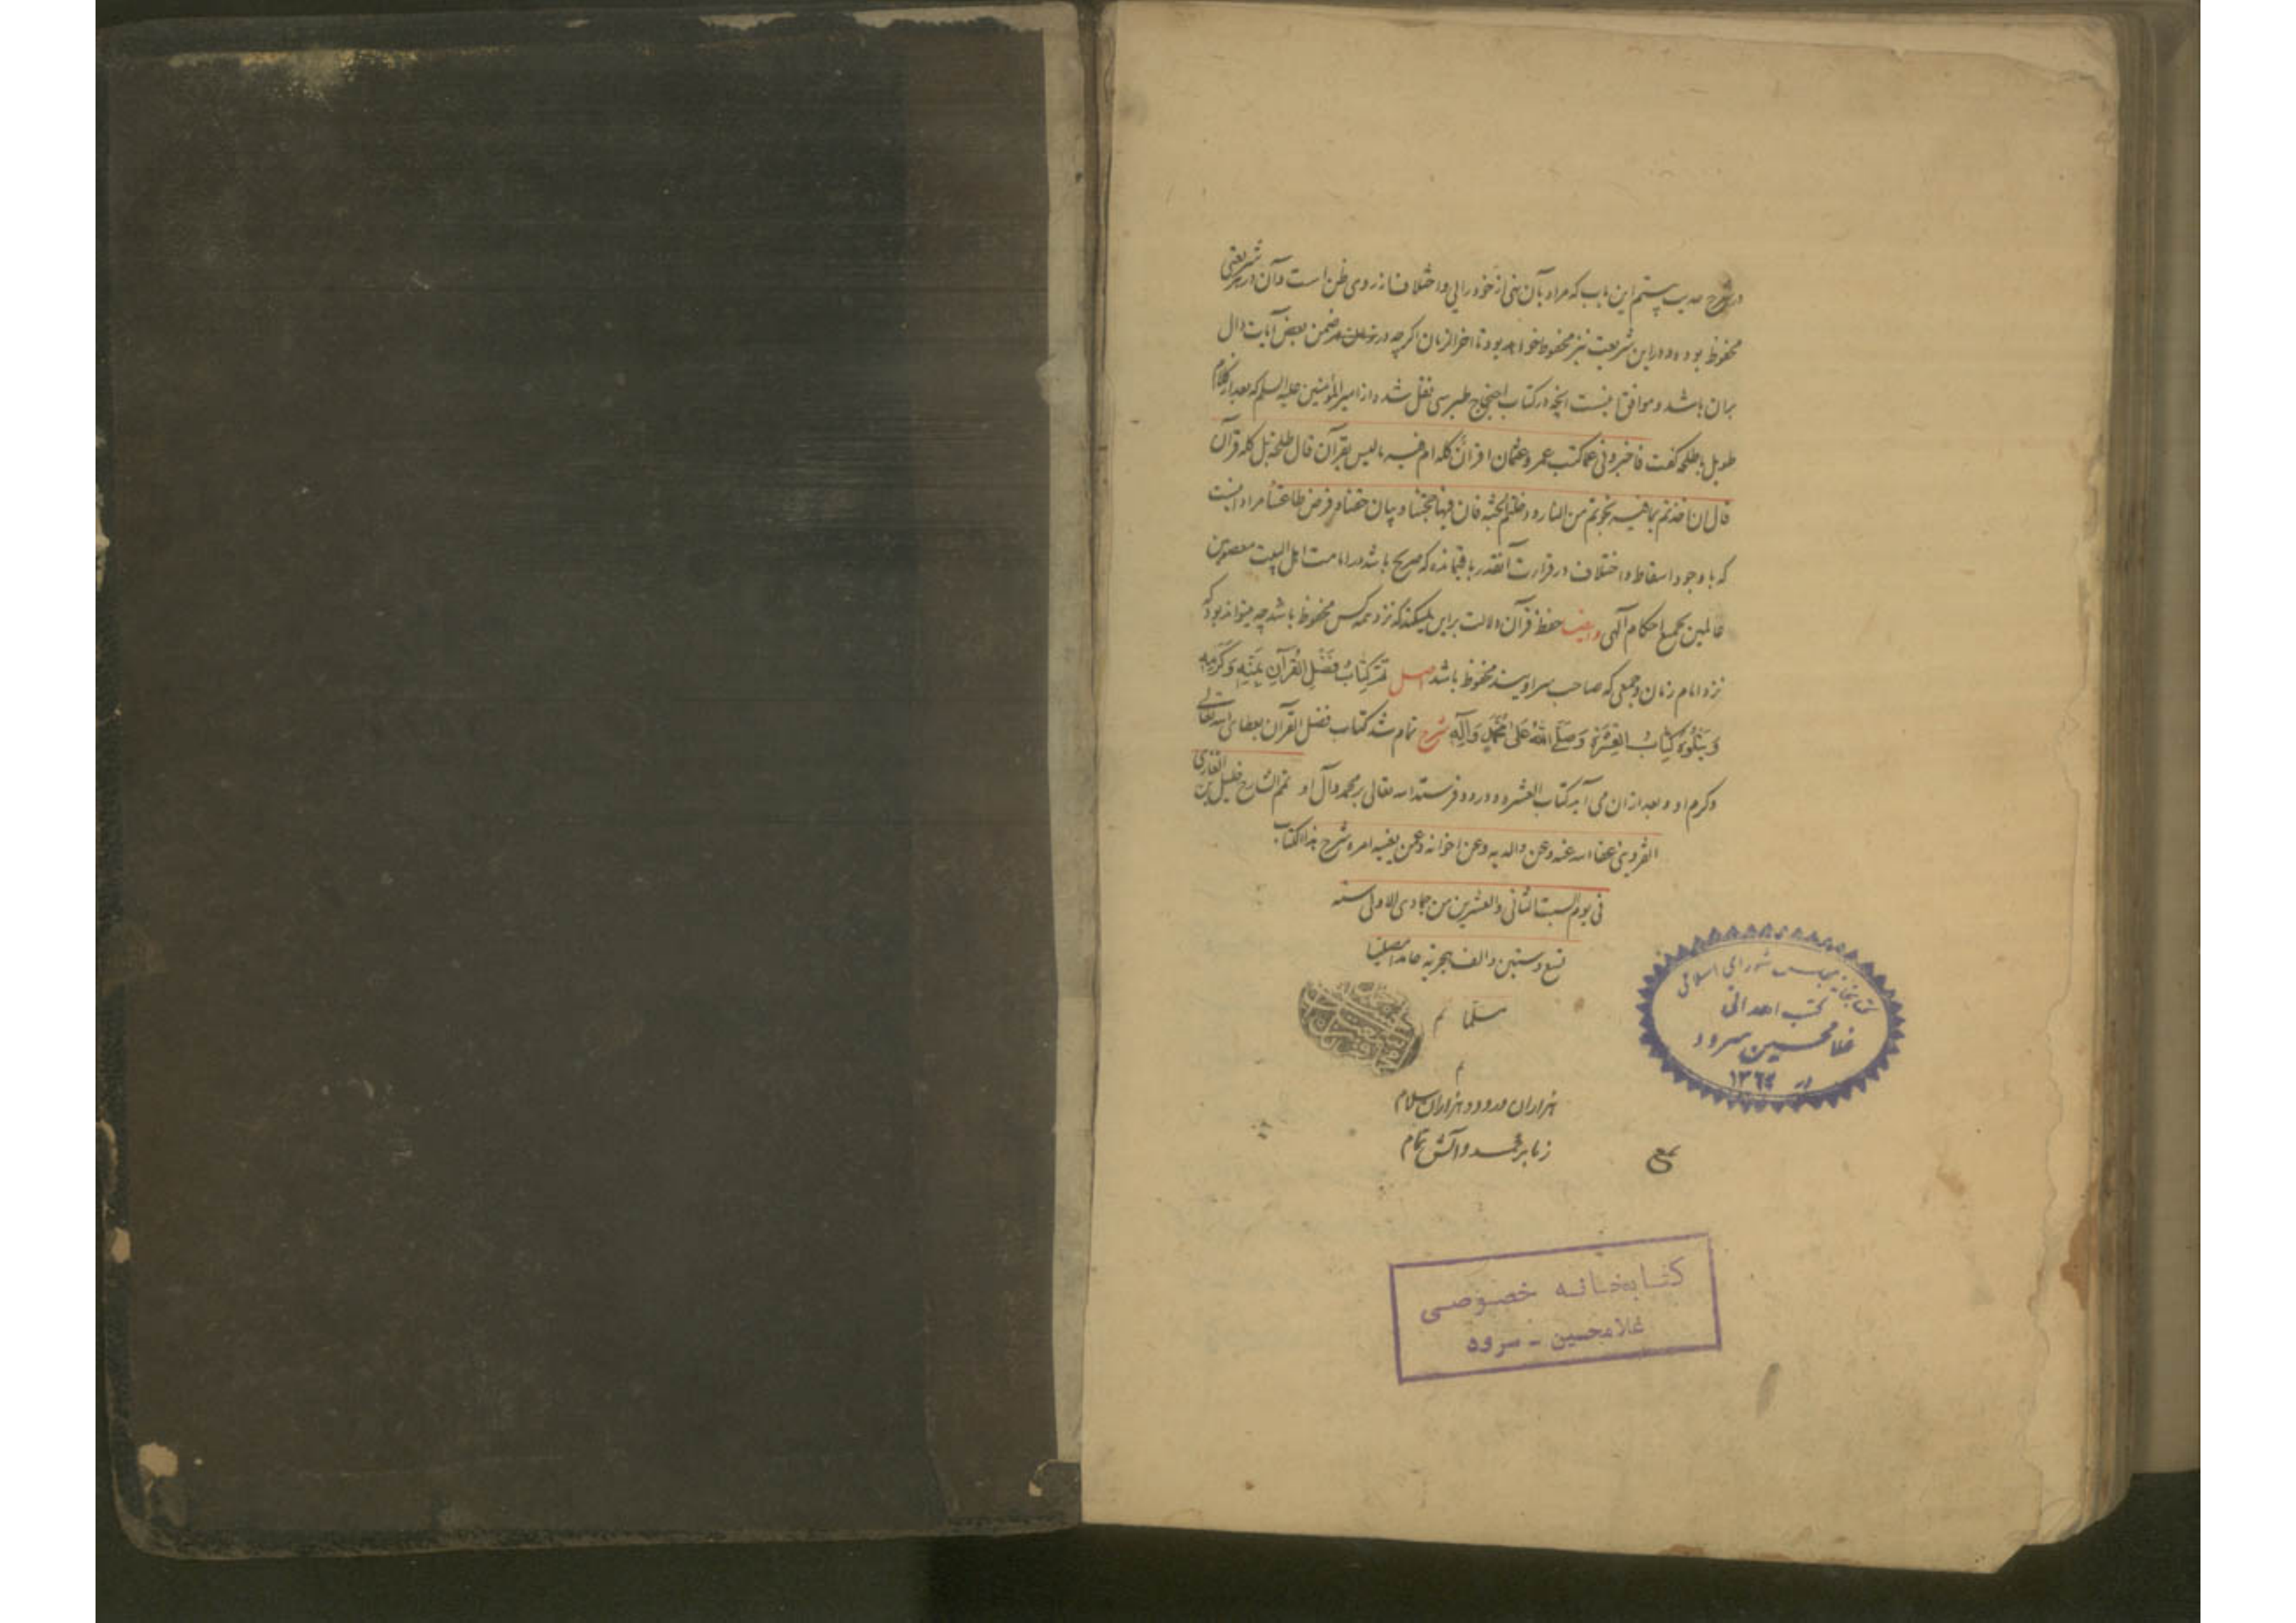 در شرح حدیث بیستم این باب که مراد بآن نهی از خود رایی و اختلاف از روی ظن است و آن در هر شریعتی
محفوظ بوده و در این شریعت نیز محفوظ خواهد بود تا اخر الزمان اکرچه در ضمن بعض آیات دال
بران باشد و موافق اینست انچه در کتاب احتجاج طبرسی نقل شده از امیر المؤمنین علیه السلم که بعد از کلام
طویل با طلحه کفت فاخبرونی عما کتب عمر و عثمان اقرآن کله ام فیه ما لیس بقرآن قال طلحة بل کله قرآن
قال ان اخذتم بما فیه نجوتم من النار و دخلتم الجنة فان فیها حجتنا و بیان حقنا و فرض طاعتنا مراد اینست
که با وجود اسقاط و اختلاف در قراءت آنقدر باقیمانده که صریح باشد در امامت اهل البیت معصومین
عالمین بجمیع احکام آلهی و ایضا حفظ قرآن دلالت براین نمیکند که نزد همه کس محفوظ باشد چه میتواند بود که
نزد امام زمان و جمعی که صاحب سر اویند محفوظ باشد اصل تَمَّ كِتَابُ فَضْلِ القُرآنِ بِمَنِّهِ وَكَرَمِهِ
وَيَتْلُوهُ كِتَابُ الْعِشْرَةِ وَصَلَّى اللهُ عَلى مُحَمَّدٍ وَآلِهِ شرح تمام شد کتاب فضل القرآن بعطای الله تعالی
وکرم او و بعد از ان می آید کتاب العشره و درود فرستد الله تعالی بر محمد و آل او تمم الشارح خلیل بن الغازی
القزوینی عفا الله عنه وعن والدیه وعن اخوانه وعمن یعنیه امره شرح هذا الکتاب
فی یوم السبت الثانی والعشرین من جمادی الاولی سنه
تسع وستین والف هجریه حامدا مصلیا
مسلما تم
م
هزاران درود و هزاران سلام
ز ما بر محمد و آلش تمام
کتابخانه مجلس شورای اسلامی
کتب اهدائی
غلامحسین سرود
در ۱۳۶۴
کتابخانه خصوصی
غلامحسین - سرود